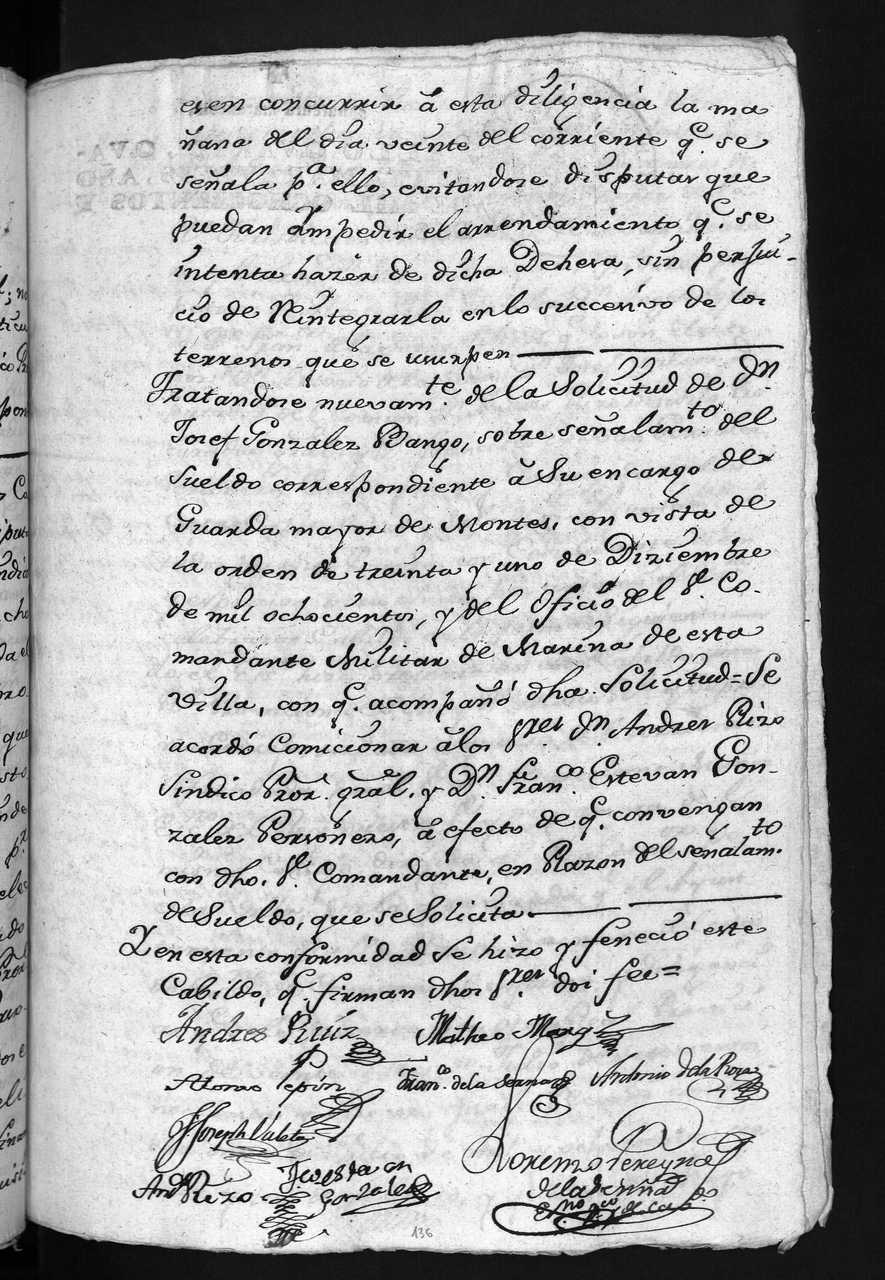 esen concurrir â esta diligencia la ma
ñana del dia veinte del corriente q.e se
señala p.a ello, evitandose disputas que
puedan ympedir el arrendamiento q.e se
intenta hazer de dicha Dehesa, sin perjui-
cio de Reintegrarla en lo succesivo de los
terrenos que se usurpen
Tratandose nuevam.te de la Solicitud de D.n
Josef Gonzalez Bango, sobre señalam.to del
Sueldo correspondiente â Su encargo de
Guarda mayor de Montes, con vista de
la orden de treinta y uno de Diziembre
de mil ochocientos, y del Oficio del S.r Co-
mandante Militar de Marina de esta
villa, con q.e acompañó dha. Solicitud = Se
acordó Comicionar â los S.res D.n Andres Rizo
Sindico Pror. gral. y D.n Fran.co Estevan Gon-
zalez Personero, â efecto de q.e convengan
con dho. S.r Comandante, en Razon del señalam.to
de Sueldo, que se Solicita
Y en esta conformidad Se hizo y feneció este
Cabildo, q.e firman dhos S.res doi fee =
Andres Ruiz Matheo Marq.z
Alonso Pepin Fran.co de la Serna Antonio de la Rosa
Joseph
And.s Rizo Estevan Lorenzo Pereyra
Gonzalez de la
ess.no de Cab.do
136